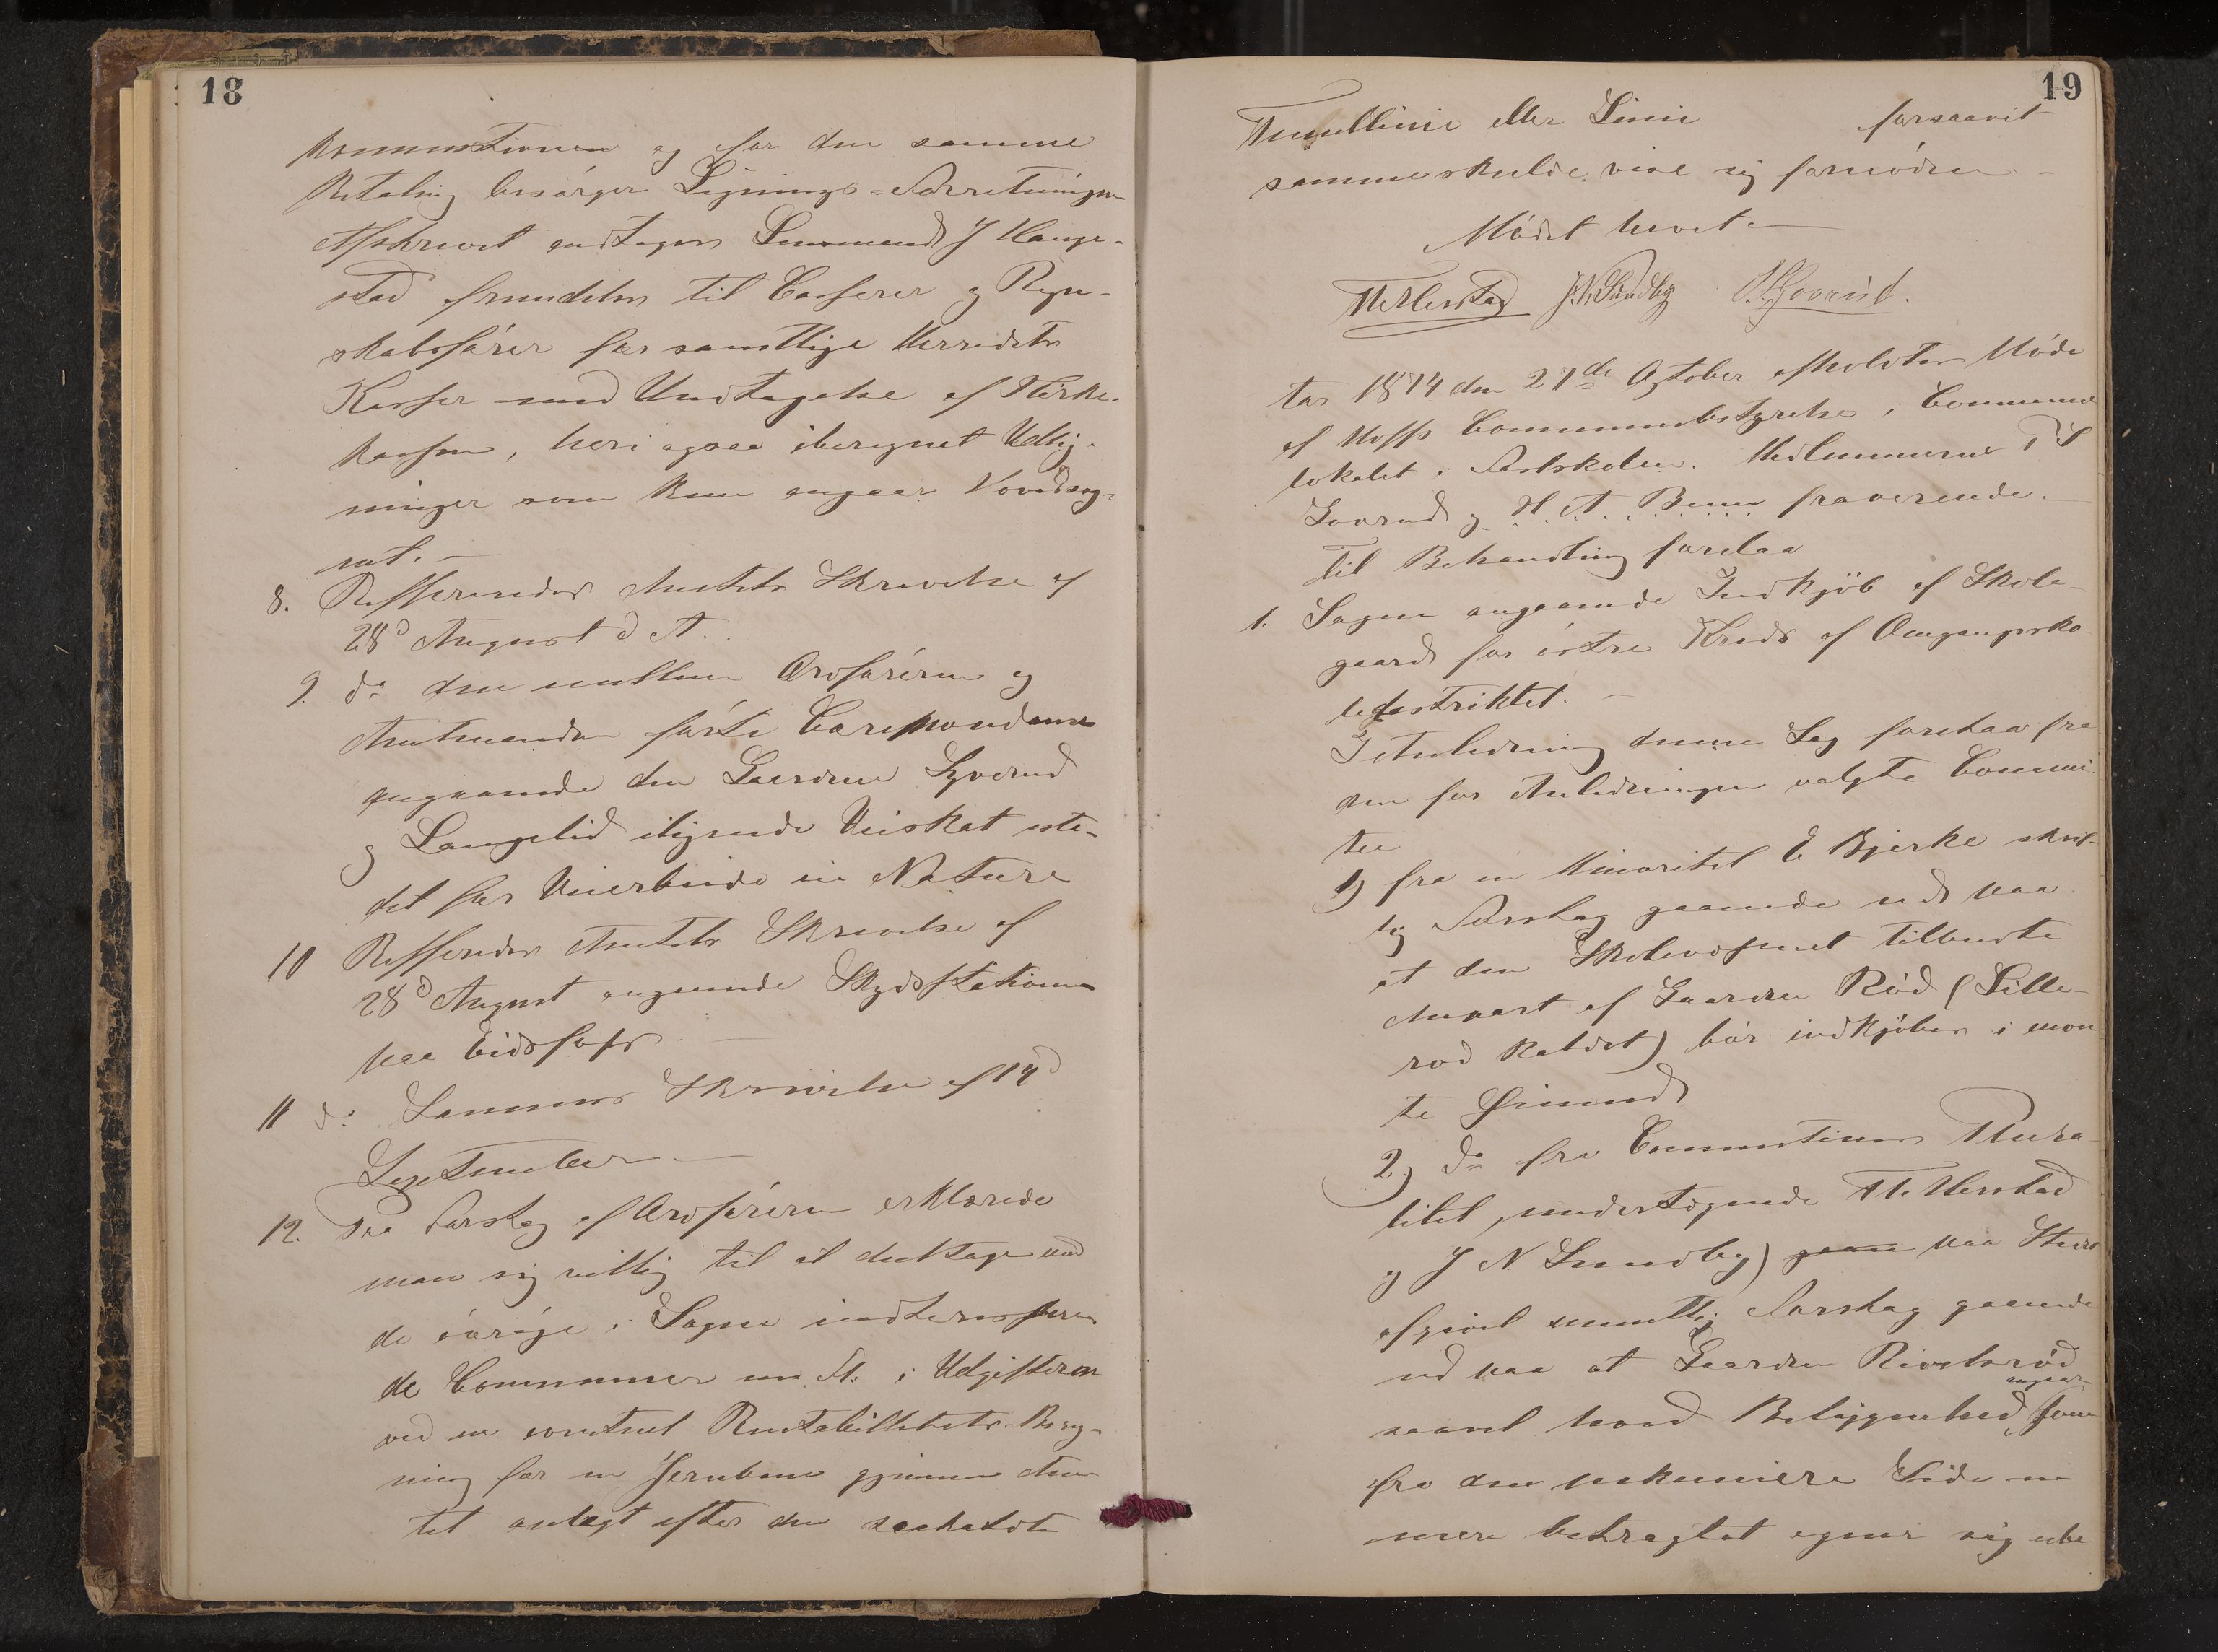 18
Kommisionen og for den samme
Betaling besørger Lignings-Forretningen
Afskrevet antages Lensmand J Hauge-
stad fremdeles til Casserer og Regn-
skabsfører for samtlige Herredets
Kasser med Undtagelse af Kirke-
kassen, heri ogsaa iberegnet Udlig-
ninger som kun angaar Hovedsog-
net. —
8. Reffereredes Amtets Skrivelse af
28d August d A.
9. do den mellem Ordføreren og
Amtmanden førte Corespondance
angaaende den Gaardene Sgverud
og Langelid ilignede Veiskat iste-
det for Veiarbeide in Natura
10 Reffereredes Amtets Skrivelse af
28d August angaaende Skydsstationen
paa Eidsfoss —
11 do Sammes Skrivelse af 14d
September —
12. Paa Forslag af Ordføreren erklærede
man sig villig til at deeltage med
de øvrige i Sagen indteresere-
de Communer m. Fl. i Udgifterne
ved en eventuel Rentabilitets-Bereg-
ning for en Jernbane gjennem Am-
tet anlagt efter den saakaldte
19
eller Linie forsaavit
samme skulde vise sig fornøden —
Mødet hævet. —
J. N. Sundby Goverud.
Aar 1874 den 27de October afholdtes Møde
af Hoffs Communebestyrelse i Commune
lokalet i Fastskolen. Medlemmerne
Goverud og H. A. Bruun fraværende.
Til Behandling forelaa
1. Sagen angaaende Indkjöb af Skole-
gaard for østre Kreds af Omgangssko
ledistriktet. —
I Anledning denne Sag forelaa fra
den for Anledningen valgte Commi
tee
1) fra en Minoritet E Bjerke skrift-
lig Forslag gaaende ud paa
at den Skolevæsenet tilbudte
Anpart af Gaarden Rød (Lille-
rød kaldet) bør indkjøbes i
te Øiemed
2) do fra Commistions Plura-
litet, undertegnede
og J N Sundby) gaaen paa Stedet
afgivet mundtlig Forslag gaaende
ud paa at Gaarden
saavel hvad Beliggenhed angaar som
fra den pekuniære Side
mere betragtet egner sig ube